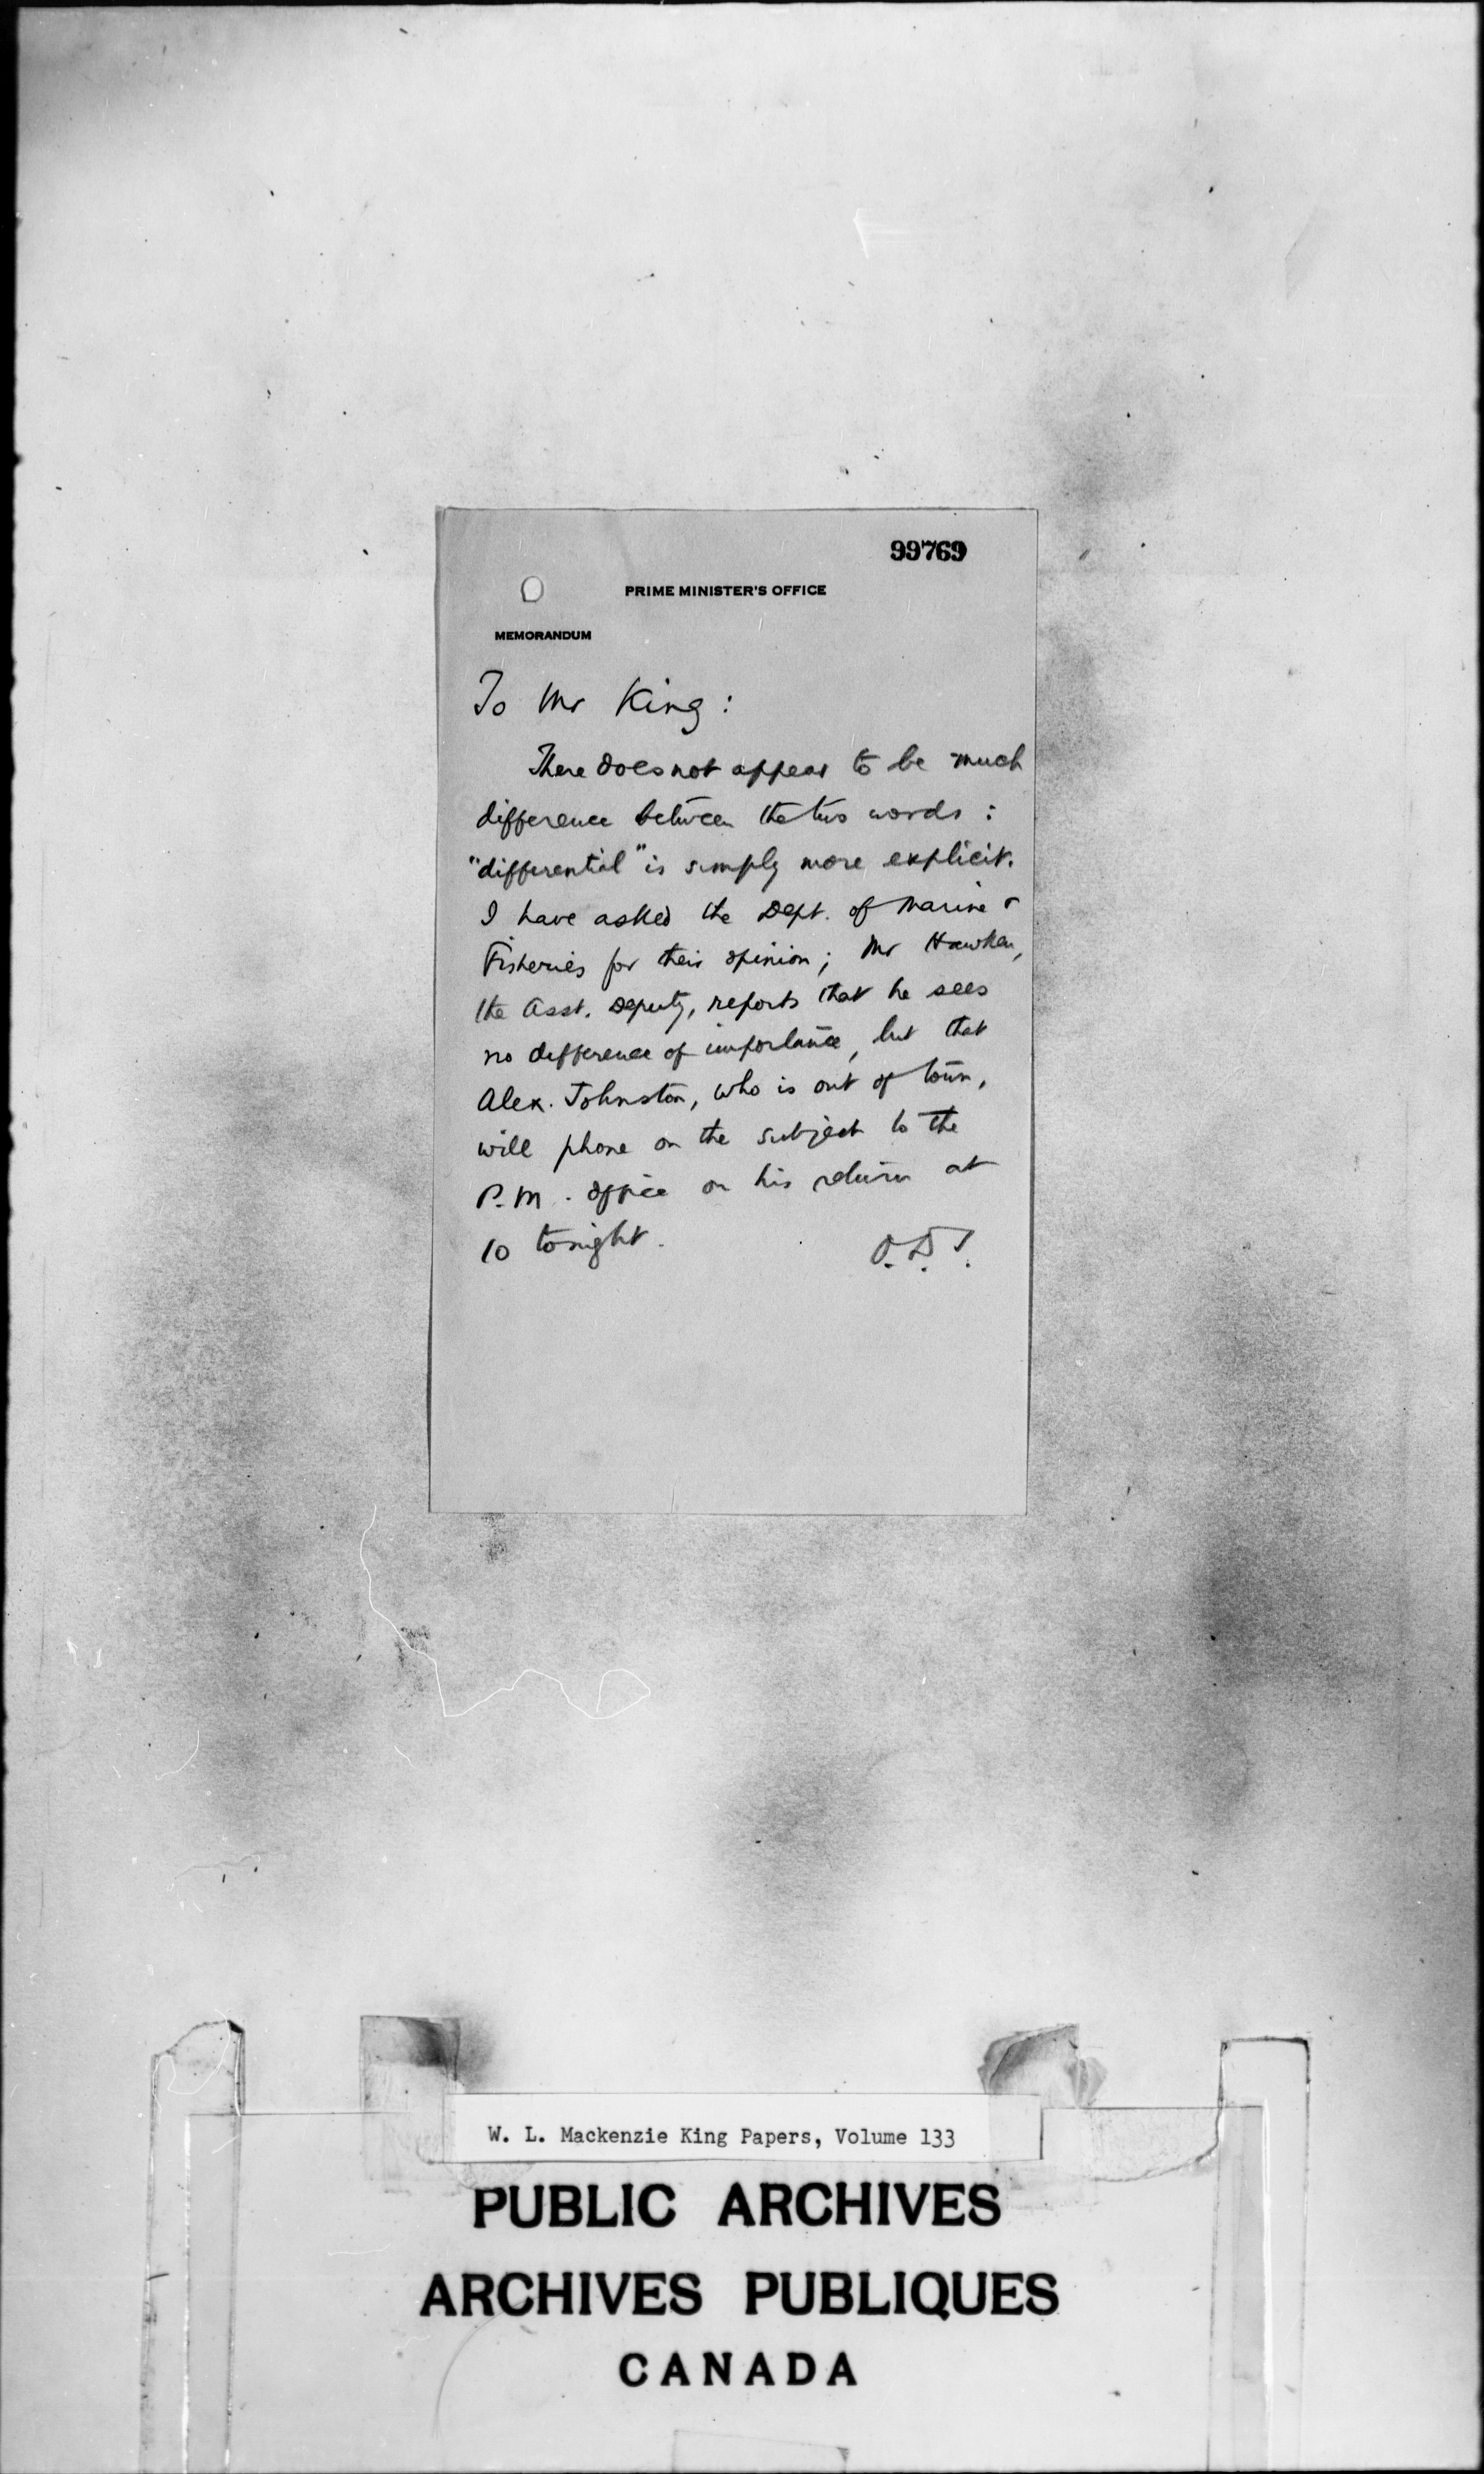 99769
PRIME MINISTER'S OFFICE
MEMORANDUM
To Mr King:
There does not appear to be much
difference between the two words:
"differential" is simply more explicit.
I have asked the Dept. of Marine &
Fisheries for their opinion; Mr Hawken,
the Asst. Deputy, reports that he sees
no difference of importance, but that
Alex. Johnston, who is out of town,
will phone on the subject to the
P.M. office on his return at
10 tonight.
O.D.S.
W. L. Mackenzie King Papers, Volume 133
PUBLIC ARCHIVES
ARCHIVES PUBLIQUES
CANADA